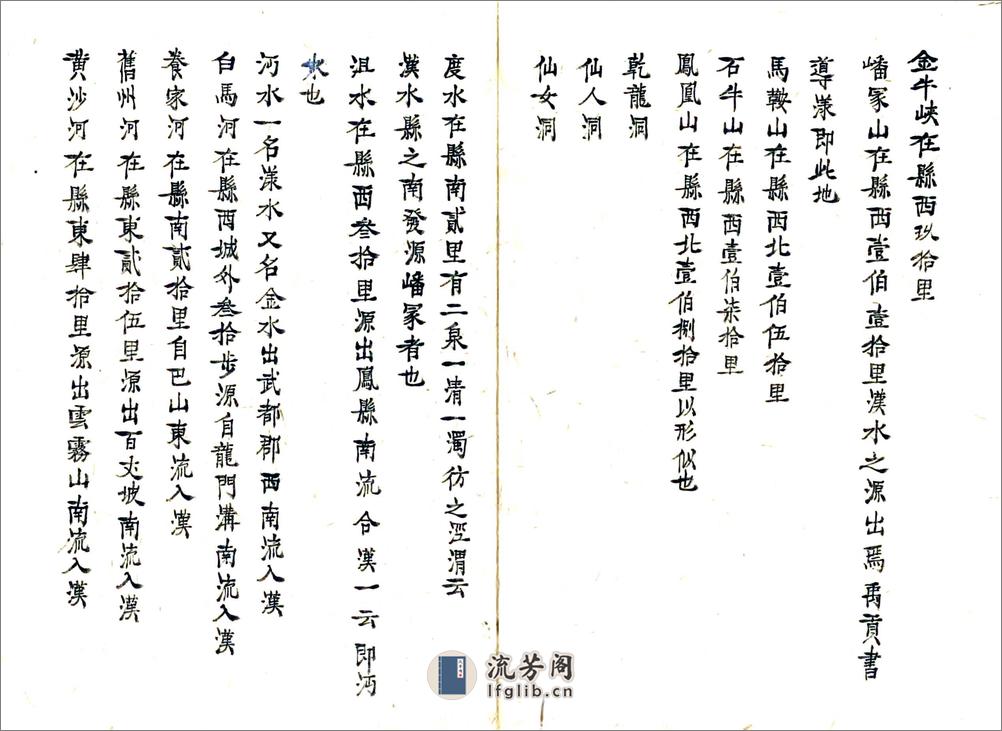 金牛峽在縣西玖拾里
嶓冢山在縣西壹伯壹拾里漢水之源出焉禹貢書
導漾即此地
馬鞍山在縣西北壹伯伍拾里
石牛山在縣西壹伯柒拾里
鳳凰山在縣西北壹伯捌拾里以形似也
乾龍洞
仙人洞
仙女洞
度水在縣南貳里有二泉一清一濁彷之涇渭云
漢水縣之南發源嶓冢者也
沮水在縣西叁拾里源出鳳縣南流合漢一云即沔
水也
沔水一名漾水又名金水出武都郡西南流入漢
白馬河在縣西城外叁拾步源自龍門溝南流入漢
養家河在縣南貳拾里自巴山東流入漢
舊州河在縣東貳拾伍里源出百丈坡南流入漢
黃沙河在縣東肆拾里源出雲霧山南流入漢
流芳阁
lfglib.cn